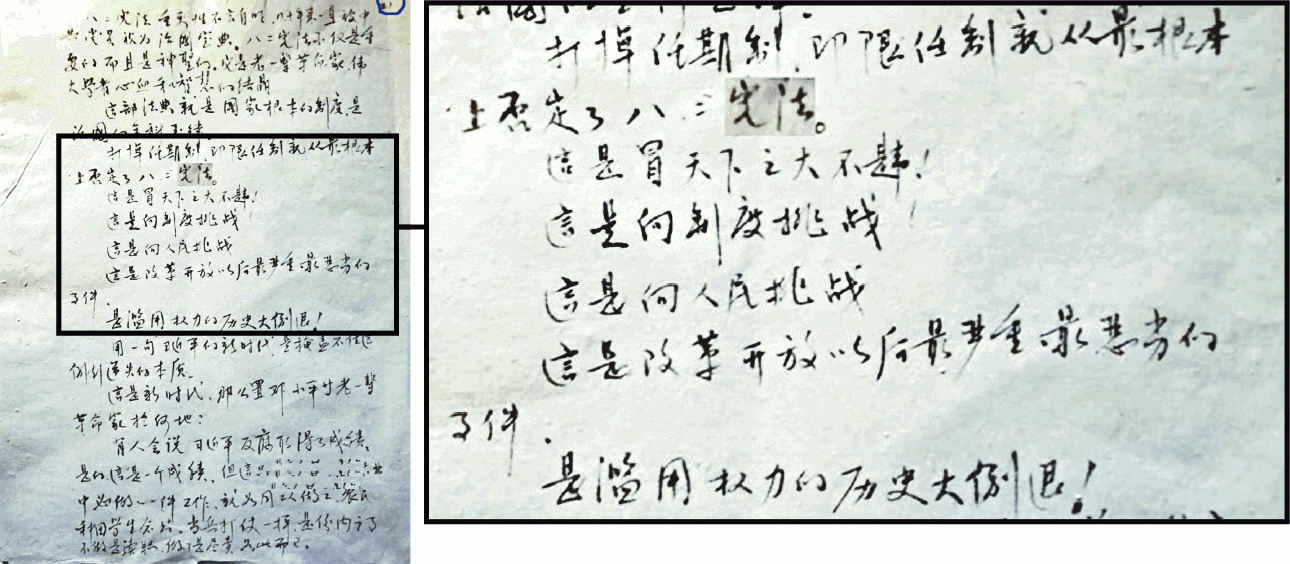 八二宪法重要性不言自明,几十年来一直被中
共党员视为治国宝典。八二宪法不仅是重
要的而且是神圣的。它是老一辈革命家,伟
大学者心血和智慧的结晶
这部法典就是国家根本的制度,是
治国的
打掉任期制,即限任制就从最根本
上否定了八二宪法。
这是冒天下之大不韪!
这是向制度挑战
这是向人民挑战
这是改革开放以后最严重最恶劣的
事件.
是滥用权力的历史大倒退!
用一句习近平的新时代是掩盖不住
倒行逆失的本质。
这是新时代,那么置邓小平等老一辈
革命家于何地?
有人会说习近平反腐取得了成绩,
是的这是一个成绩,但这
中必做的一件工作,就如同
种田学生念书,当兵打仗一样,是份内之事
不做是渎职,做了是尽责如此而已。
打掉任期制,即限任制就从最根本
上否定了八二宪法。
这是冒天下之大不韪!
这是向制度挑战!
这是向人民挑战
这是改革开放以后最严重最恶劣的
事件.
是滥用权力的历史大倒退!